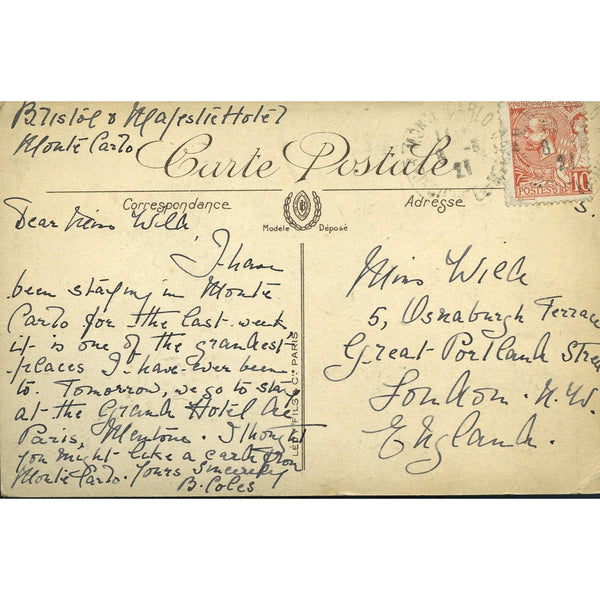 Bristol & Majestic Hotel
Monte Carlo
Carte Postale
Correspondance
Adresse
Modèle Déposé
Dear Miss Wild
I have
been staying in Monte
Carlo for the last week,
it is one of the grandest
places I have ever been
to. Tomorrow, we go to stay
at the Grand Hotel de
Paris, Mentone. I thought
you might like a card from
Monte Carlo. Yours Sincerely
B. Coles
LEVY FILS & Cie PARIS
Miss Wild
5, Osnaburgh Terrace
Great Portland Street
London. N.W.
England.
POSTES
10